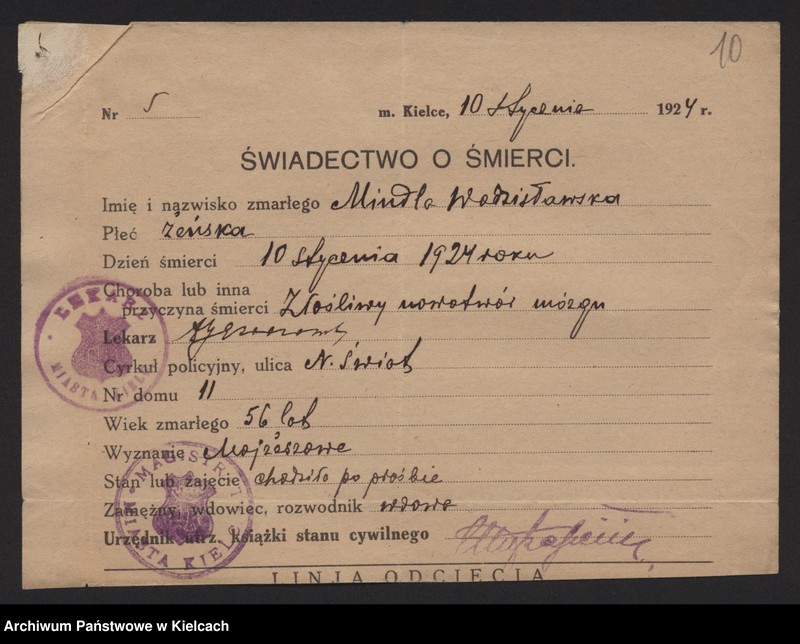 10
Nr 5 m. Kielce, 10 stycznia 1924 r.
ŚWIADECTWO O ŚMIERCI.
Imię i nazwisko zmarłego Mindla Wodzisławska
Płeć żeńska
Dzień śmierci 10 stycznia 1924 roku
Choroba lub inna
przyczyna śmierci Złośliwy nowotwór mózgu
Lekarz
Cyrkuł policyjny, ulica N. Świat
Nr domu 11
Wiek zmarłego 56 lat
Wyznanie Mojżeszowe
Stan lub zajęcie chodziła po prośbie
Zamężny, wdowiec, rozwodnik wdowa
Urzędnik utrz. książki stanu cywilnego
LINJA ODCIĘCIA
LEKARZ MIASTA KIELC
MAGISTRAT MIASTA KIELC
Archiwum Państwowe w Kielcach